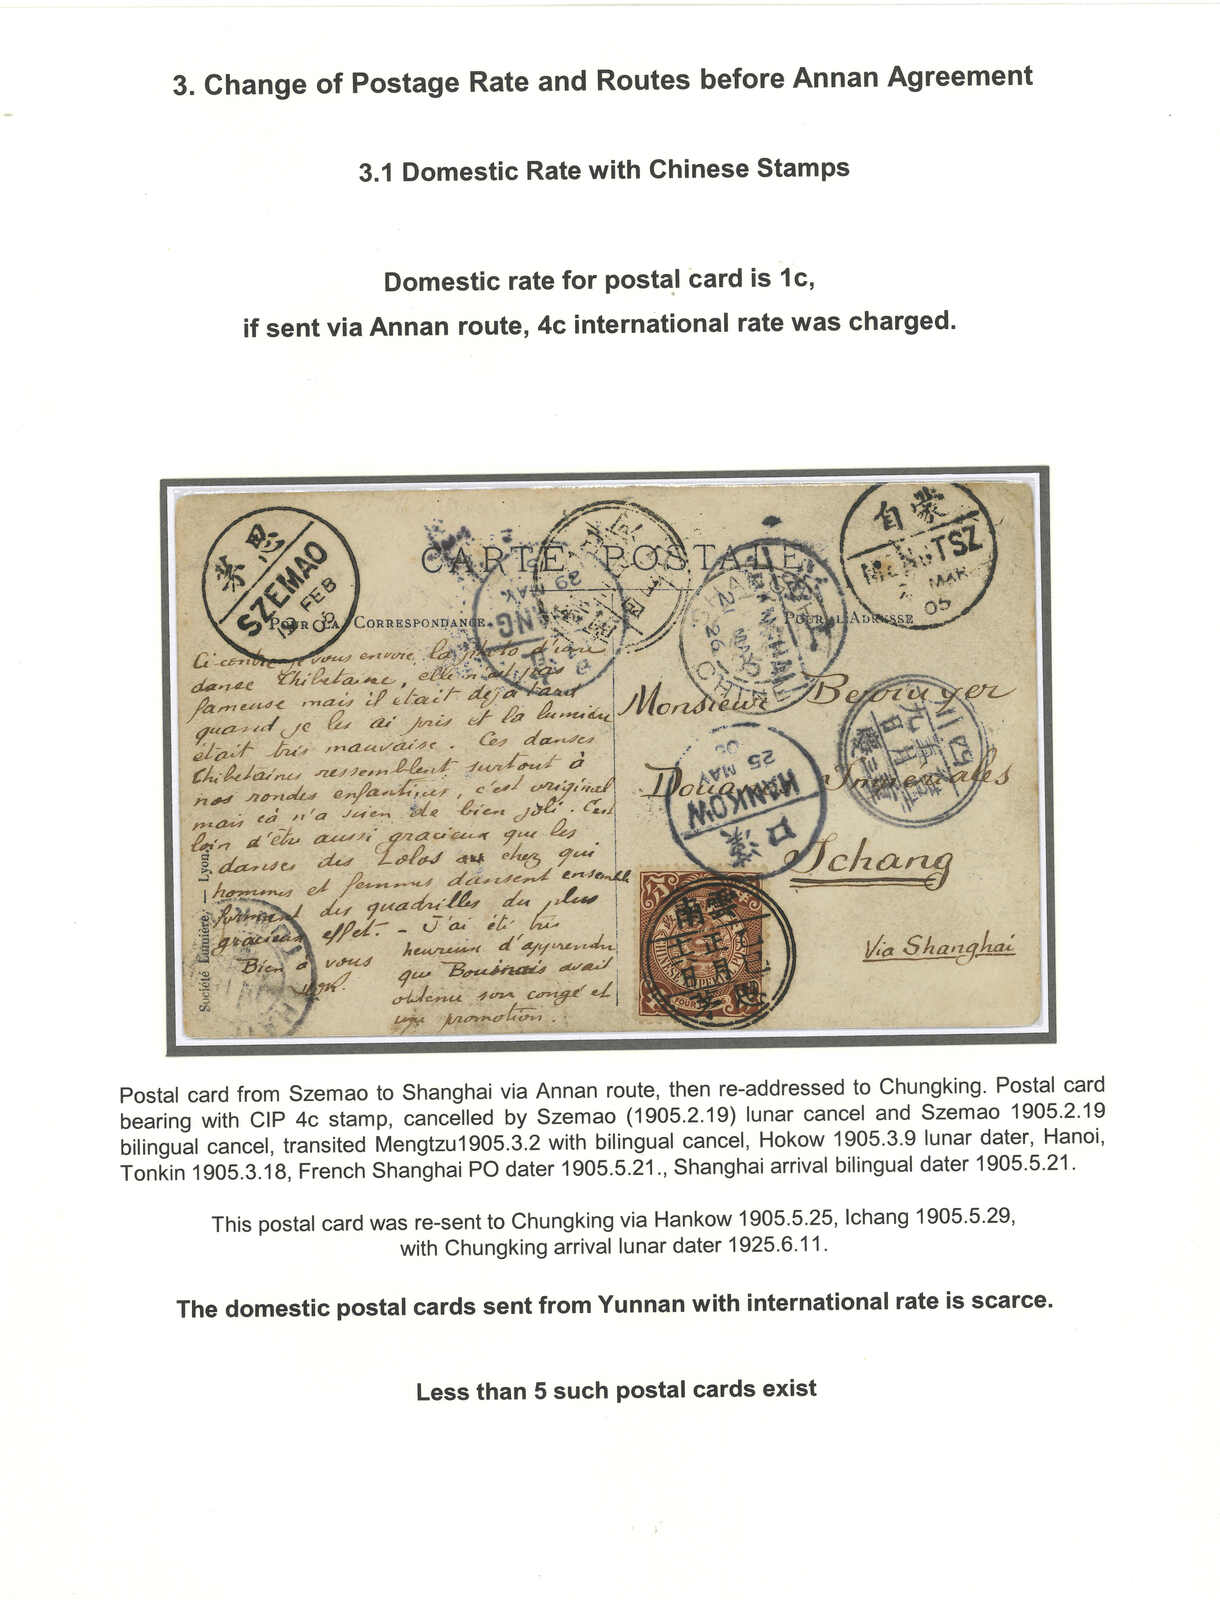 3. Change of Postage Rate and Routes before Annan Agreement
3.1 Domestic Rate with Chinese Stamps
Domestic rate for postal card is 1c,
if sent via Annan route, 4c international rate was charged.
CARTE POSTALE
思茅
SZEMAO
19 FEB 05
蒙自
MENGTSZ
2 MAR 05
POUR LA CORRESPONDANCE
POUR L'ADRESSE
Ci-contre je vous envoie la photo d'une
danse Thibetaine, elle n'est pas
fameuse mais il était déjà tard
quand je les ai pris et la lumière
était très mauvaise. Ces danses
Thibetaines ressemblent surtout à
nos rondes enfantines, c'est original
mais çà n'a rien de bien joli. C'est
loin d'être aussi gracieux que les
danses des Lolos chez qui
hommes et femmes dansent ensemble
forment des quadrilles du plus
gracieux effet. - J'ai été très
heureux d'apprendre
que Bouinais avait
obtenu son congé et
une promotion.
Bien à vous
Monsieur Berruyer
Douanes Impériales
Ichang
Via Shanghai
CHINE
25 MAY 05
HANKOW
漢口
29 MAY
雲南
正月
思茅
CHINESE IMPERIAL POST
FOUR CENTS
Société Lumière. — Lyon.
Postal card from Szemao to Shanghai via Annan route, then re-addressed to Chungking. Postal card
bearing with CIP 4c stamp, cancelled by Szemao (1905.2.19) lunar cancel and Szemao 1905.2.19
bilingual cancel, transited Mengtzu1905.3.2 with bilingual cancel, Hokow 1905.3.9 lunar dater, Hanoi,
Tonkin 1905.3.18, French Shanghai PO dater 1905.5.21., Shanghai arrival bilingual dater 1905.5.21.
This postal card was re-sent to Chungking via Hankow 1905.5.25, Ichang 1905.5.29,
with Chungking arrival lunar dater 1925.6.11.
The domestic postal cards sent from Yunnan with international rate is scarce.
Less than 5 such postal cards exist